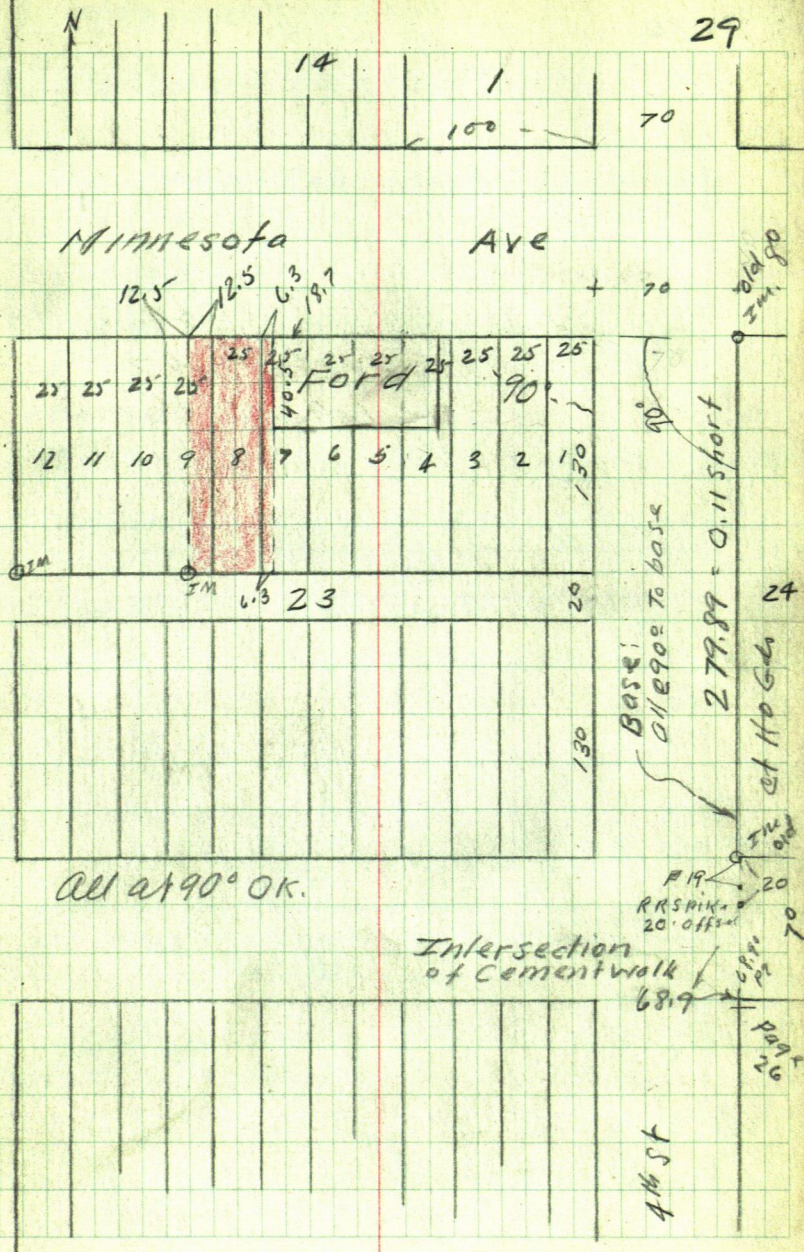 29
N
14
1
100
70
Minnesota Ave
12.5 12.5 6.3 18.7
+ 70
old
Im. 90
25 25 25 25 25 25 25 25 25 25 25 25
Ford
40.5
90°
90°
12 11 10 9 8 7 6 5 4 3 2 1
130
IM
IM
6.3
23
20
24
Base:
all @ 90° To base
279.89 = 0.11 short
130
All at 90° OK.
P 19
RR Spike
20' offset
20
70
Intersection
of Cement walk
68.9
68.90
Page
26
4th St